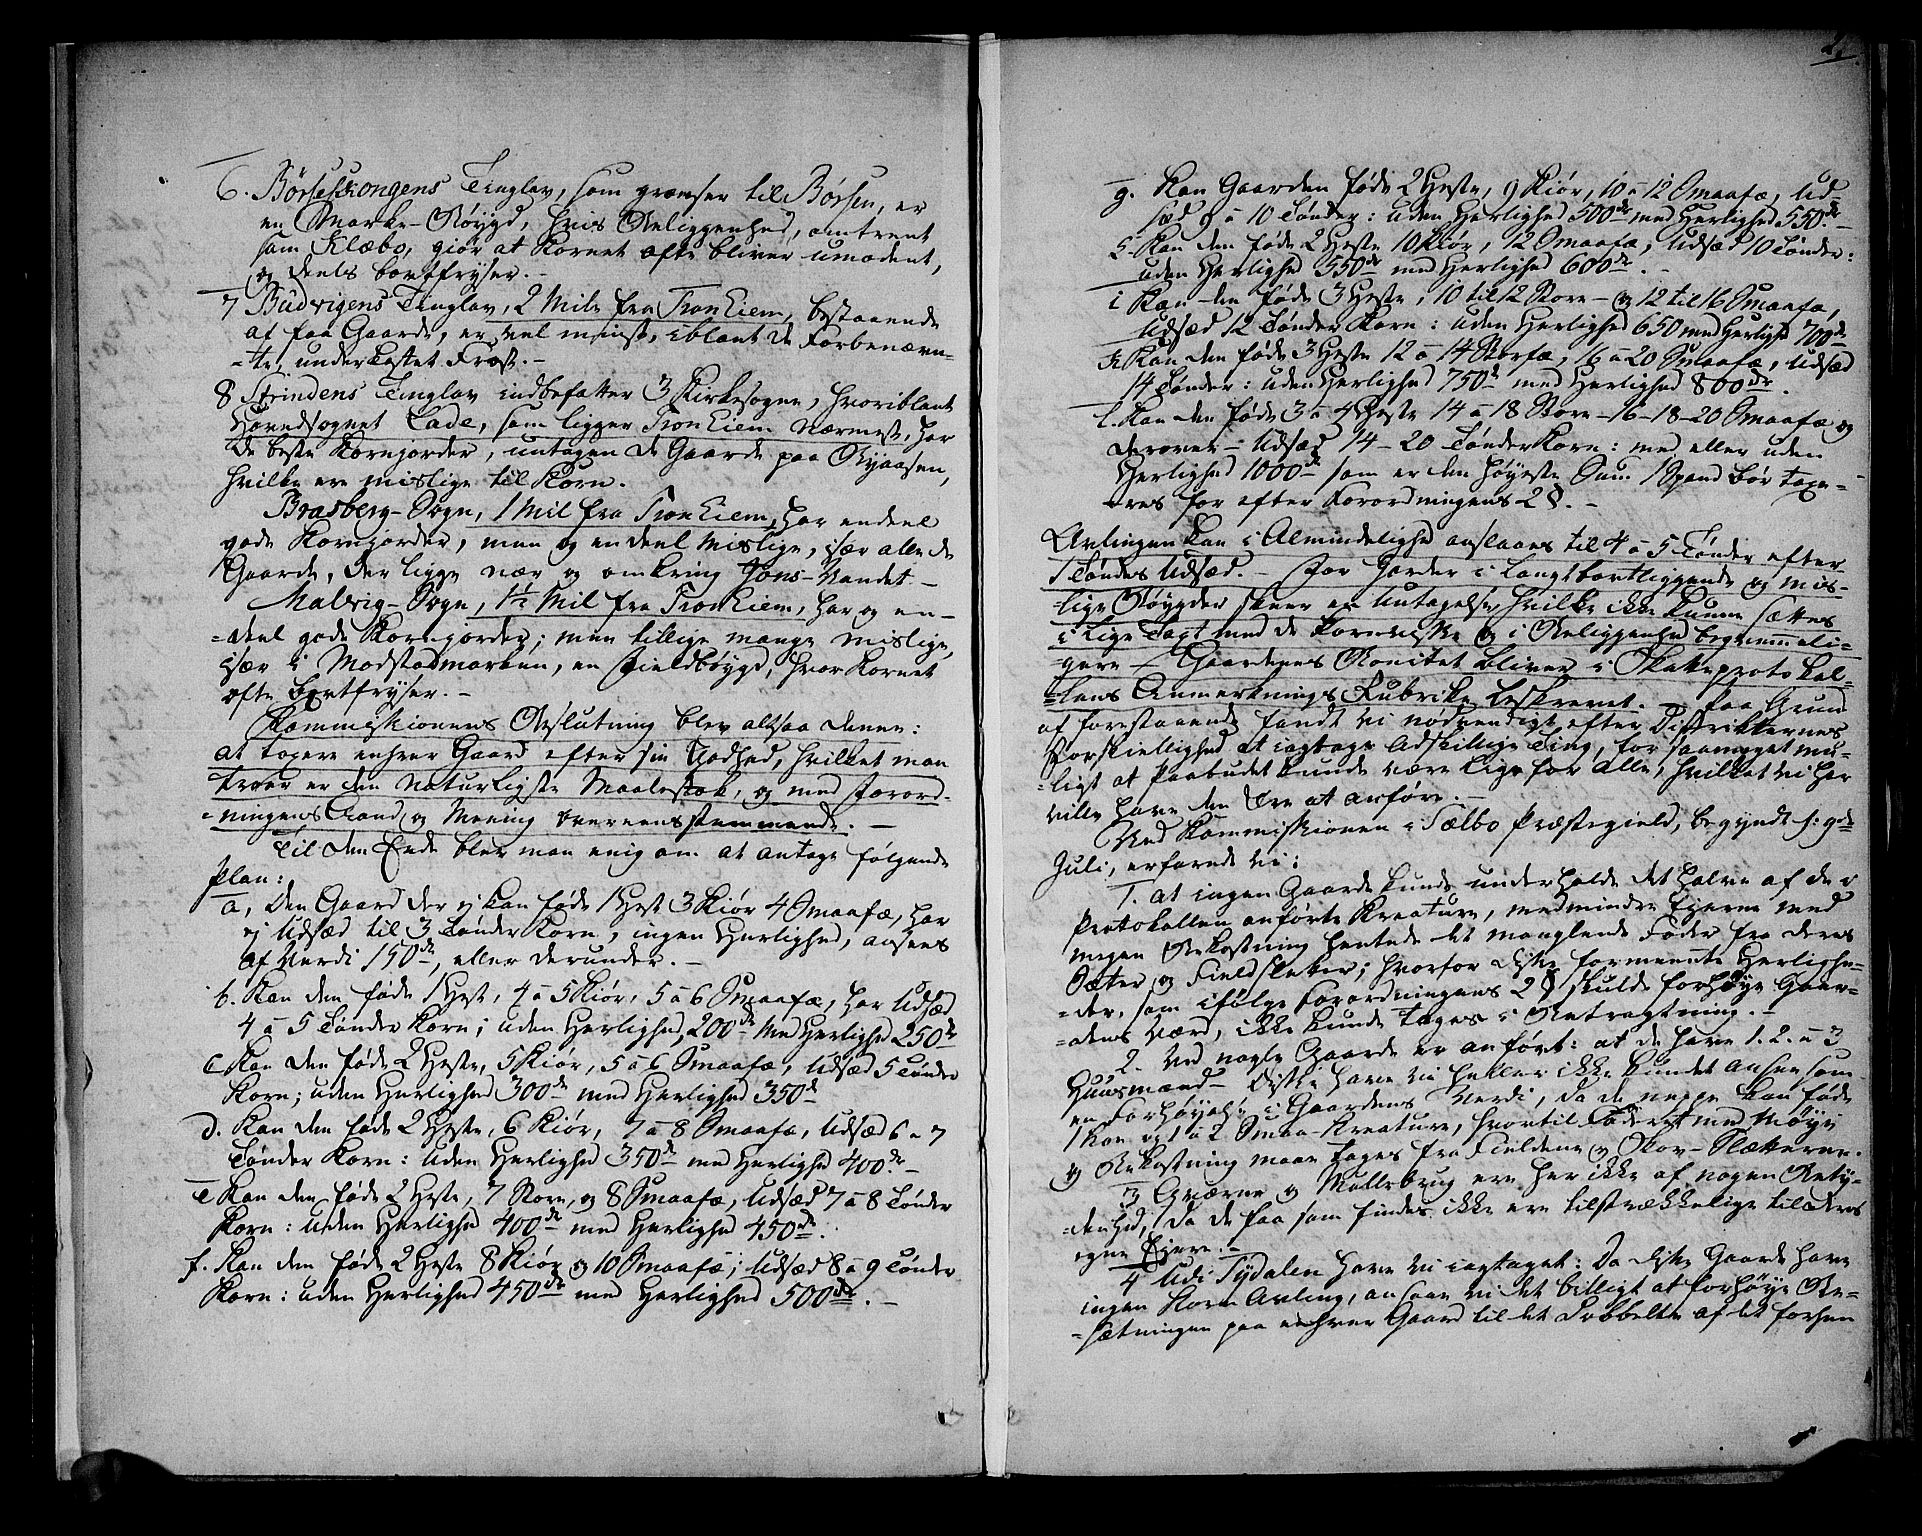 6. Børseskongens Tinglav, som grænser til Børsen, er
en Marke-Bøygd, hvis Beliggenhed, omtrent
som Klæbo, giør at Kornet ofte bliver umodent,
og deels bortfryser. -
7 Budvigens Tinglav, 2 Mile fra Tronhiem, bestaaende
af faa Gaarde, er vel minst, iblant de Forbenævn-
-te, underkastet Frost. -
8 Strindens Tinglav indbefatter 3 Kirkesogne, hvoriblant
Hovedsognet Lade, som ligger Tronhiem nærmest, har
de beste Kornjorder, untagen de Gaarde paa Byaasen,
hvilke ere mislige til Korn.
Bratsberg-Sogn, 1 Mil fra Tronhiem, har endeel
gode Kornjorder, men og en deel mislige, især alle de
Gaarde, der ligge nær og omkring Jons-Vandet -
Malvig-Sogn, 1½ Mil fra Tronhiem, har og en-
-deel gode Kornjorder; men tillige mange mislige,
især i Mostadmarken, en Fieldbøygd, hvor Kornet
ofte bortfryser. -
Kommissionens Beslutning blev altsaa denne:
at taxere enhver Gaard efter sin Godhed, hvilket man
troer er den naturligste Maalestok, og med Forord-
-ningens Aand og Mening overeensstemmende. -
Til den Ende blev man enig om at antage følgende
Plan:
a, Den Gaard der ej kan føde 1 Hest 3 Kiør 4 Smaafæ, har
ej Udsæd til 3 Tønder Korn, ingen Herlighed, ansees
af Verdi 150 dr, eller derunder. -
b. Kan den føde 1 Hest, 4 à 5 Kiør, 5 à 6 Smaafæ, har Udsæd
4 à 5 Tønder Korn; uden Herlighed, 200 dr Med Herlighed 250 dr
c Kan den føde 2 Heste, 5 Kiør, 5 à 6 Smaafæ, Udsæd 5 Tønder
Korn; uden Herlighed 300 dr med Herlighed 350 dr
d. Kan den føde 2 Heste, 6 Kiør, 7 à 8 Smaafæ, Udsæd 6 a 7
Tønder Korn: uden Herlighed 350 dr med Herlighed 400 dr. -
e Kan den føde 2 Heste, 7 Kørn, og 8 Smaafæ, Udsæd 7 à 8 Tønder
Korn: uden Herlighed 400 dr med Herlighed 450 dr.
f. Kan den føde 2 Heste 8 Kiør og 10 Smaafæ; Udsæd 8 a 9 Tønder
Korn: uden Herlighed 450 dr med Herlighed 500 dr. -
g. Kan Gaarden føde 2 Heste, 9 Kiør, 10 à 12 Smaafæ, Ud-
sæd 9 à 10 Tønder: uden Herlighed 500 dr med Herlighed 550 dr. -
h. Kan den føde 2 Heste 10 Kiør, 12 Smaafæ, Udsæd 10 Tønder:
uden Herlighed 550 dr med Herlighed 600 dr. -
i Kan den føde 3 Heste, 10 til 12 Store - og 12 til 16 Smaafæ,
Udsæd 12 Tønder Korn: uden Herlighed 650 med Herlighed 700 dr
k Kan den føde 3 Heste 12 à 14 Storfæ, 16 à 20 Smaafæ, Udsæd
14 Tønder: uden Herlighed 750 dr med Herlighed 800 dr.
l. Kan den føde 3 à 4 Heste 14 à 18 Store - 16-18-20 Smaafæ og
derover - Udsæd 14-20 Tønder Korn: med eller uden
Herlighed 1000 dr som er den høyeste Sum 1 Spand bør taxe-
-res for efter Forordningens 2 §. -
Avlingen kan i Almindelighed anslaaes til 4 à 5 Tønder efter
1 Tøndes Udsæd. - For Gaarder i langtbortliggende og mis-
-lige Bøygder skeer en Untagelse, hvilke ikke kunne sættes
i lige Tagt med de kornviske og i Beliggenhed beqvemmeli-
gere - Gaardenes Bonitet bliver i Skatteprotokol-
-lens Anmerknings Rubrike beskrevet. - Paa Grund
af forestaaende fandt vi nødvendigt efter Distrikternes
Forskiellighed at iagtage adskillige Ting, for saavidt mu-
-ligt at Paabudet kunde være lige for Alle, hvilket vi her
ville have den Ære at anføre. -
Ved Kommissionen i Sælbo Præstegield, begyndt d: 9de
Juli, erfarede vi:
1. at ingen Gaarde kunde underholde det halve af de i
Protokollen anførte Kreature, medmindre Ejerne med
megen Bekostning hentede det manglende Foder fra deres
Sæter og Fieldsletter; hvorfor disse formeente Herlighe-
-der, som ifølge Forordningens 2 § skulde forhøye Gaar-
-dens Værd, ikke kunde tages i Betragtning. -
2. Ved nogle Gaarde er anført: at de have 1. 2. à 3
Huusmænd - Disse have vi heller ikke kundet ansee som
en Forhøyelse i Gaardens Verdi, da de neppe kan føde
1 Koe og 1 à 2 Smaa-Kreature, hvortil Foderet med Møye
og Bekostning maae tages fra Fieldene og Skov-Slætterne.
3 Qværne og Møllebrug ere her ikke af nogen Bety-
-denhed, da de faa som findes, ikke ere tilstrækkelige til deres
egne Ejere. -
4 Udi Tydalen have vi iagtaget: Da disse Gaarde have
ingen Korn Avling, ansaae vi det billigt at forhøye Be-
-sætningen paa enhver Gaard til det Dobbelte af det forhen